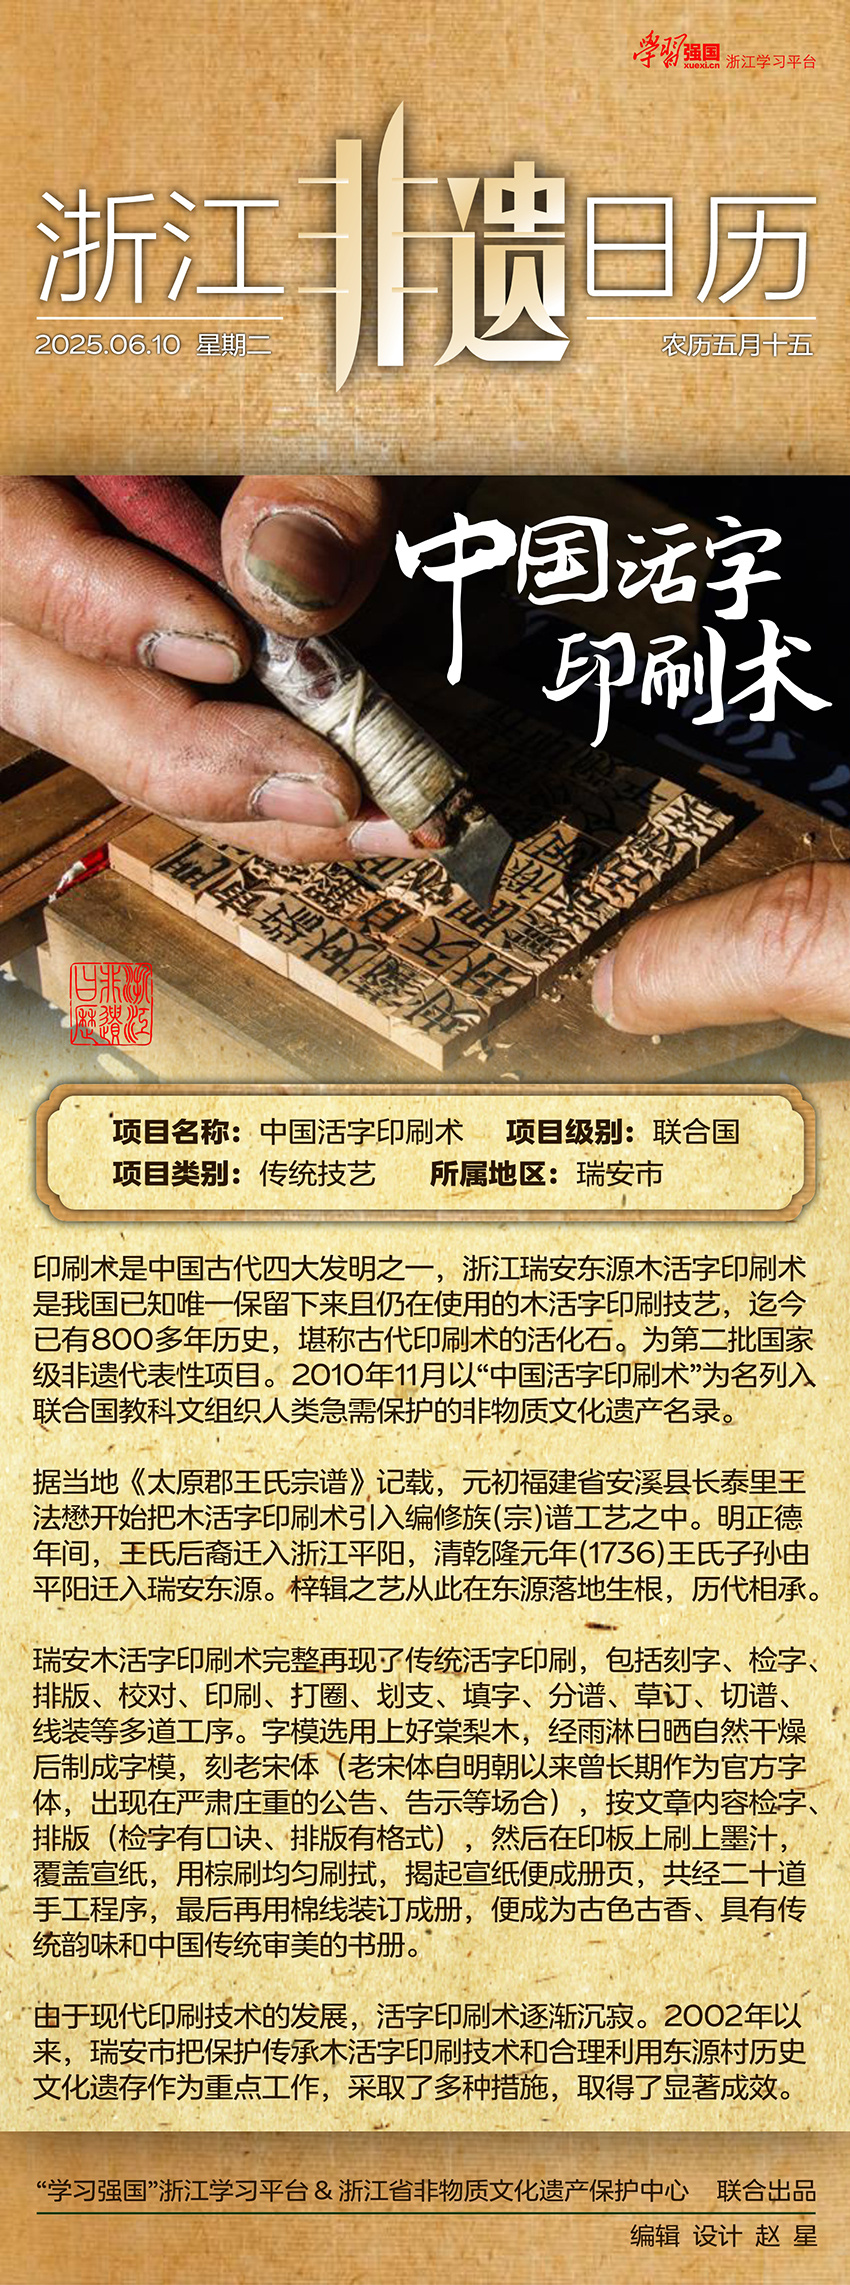 学习强国 xuexi.cn 浙江学习平台
浙江非遗日历
2025.06.10 星期二
农历五月十五
中国活字
印刷术
浙江非遗日历
项目名称：中国活字印刷术 项目级别：联合国
项目类别：传统技艺 所属地区：瑞安市
印刷术是中国古代四大发明之一，浙江瑞安东源木活字印刷术
是我国已知唯一保留下来且仍在使用的木活字印刷技艺，迄今
已有800多年历史，堪称古代印刷术的活化石。为第二批国家
级非遗代表性项目。2010年11月以“中国活字印刷术”为名列入
联合国教科文组织人类急需保护的非物质文化遗产名录。
据当地《太原郡王氏宗谱》记载，元初福建省安溪县长泰里王
法懋开始把木活字印刷术引入编修族(宗)谱工艺之中。明正德
年间，王氏后裔迁入浙江平阳，清乾隆元年(1736)王氏子孙由
平阳迁入瑞安东源。梓辑之艺从此在东源落地生根，历代相承。
瑞安木活字印刷术完整再现了传统活字印刷，包括刻字、检字、
排版、校对、印刷、打圈、划支、填字、分谱、草订、切谱、
线装等多道工序。字模选用上好棠梨木，经雨淋日晒自然干燥
后制成字模，刻老宋体（老宋体自明朝以来曾长期作为官方字
体，出现在严肃庄重的公告、告示等场合），按文章内容检字、
排版（检字有口诀、排版有格式），然后在印板上刷上墨汁，
覆盖宣纸，用棕刷均匀刷拭，揭起宣纸便成册页，共经二十道
手工程序，最后再用棉线装订成册，便成为古色古香、具有传
统韵味和中国传统审美的书册。
由于现代印刷技术的发展，活字印刷术逐渐沉寂。2002年以
来，瑞安市把保护传承木活字印刷技术和合理利用东源村历史
文化遗存作为重点工作，采取了多种措施，取得了显著成效。
“学习强国”浙江学习平台 & 浙江省非物质文化遗产保护中心 联合出品
编辑 设计 赵 星